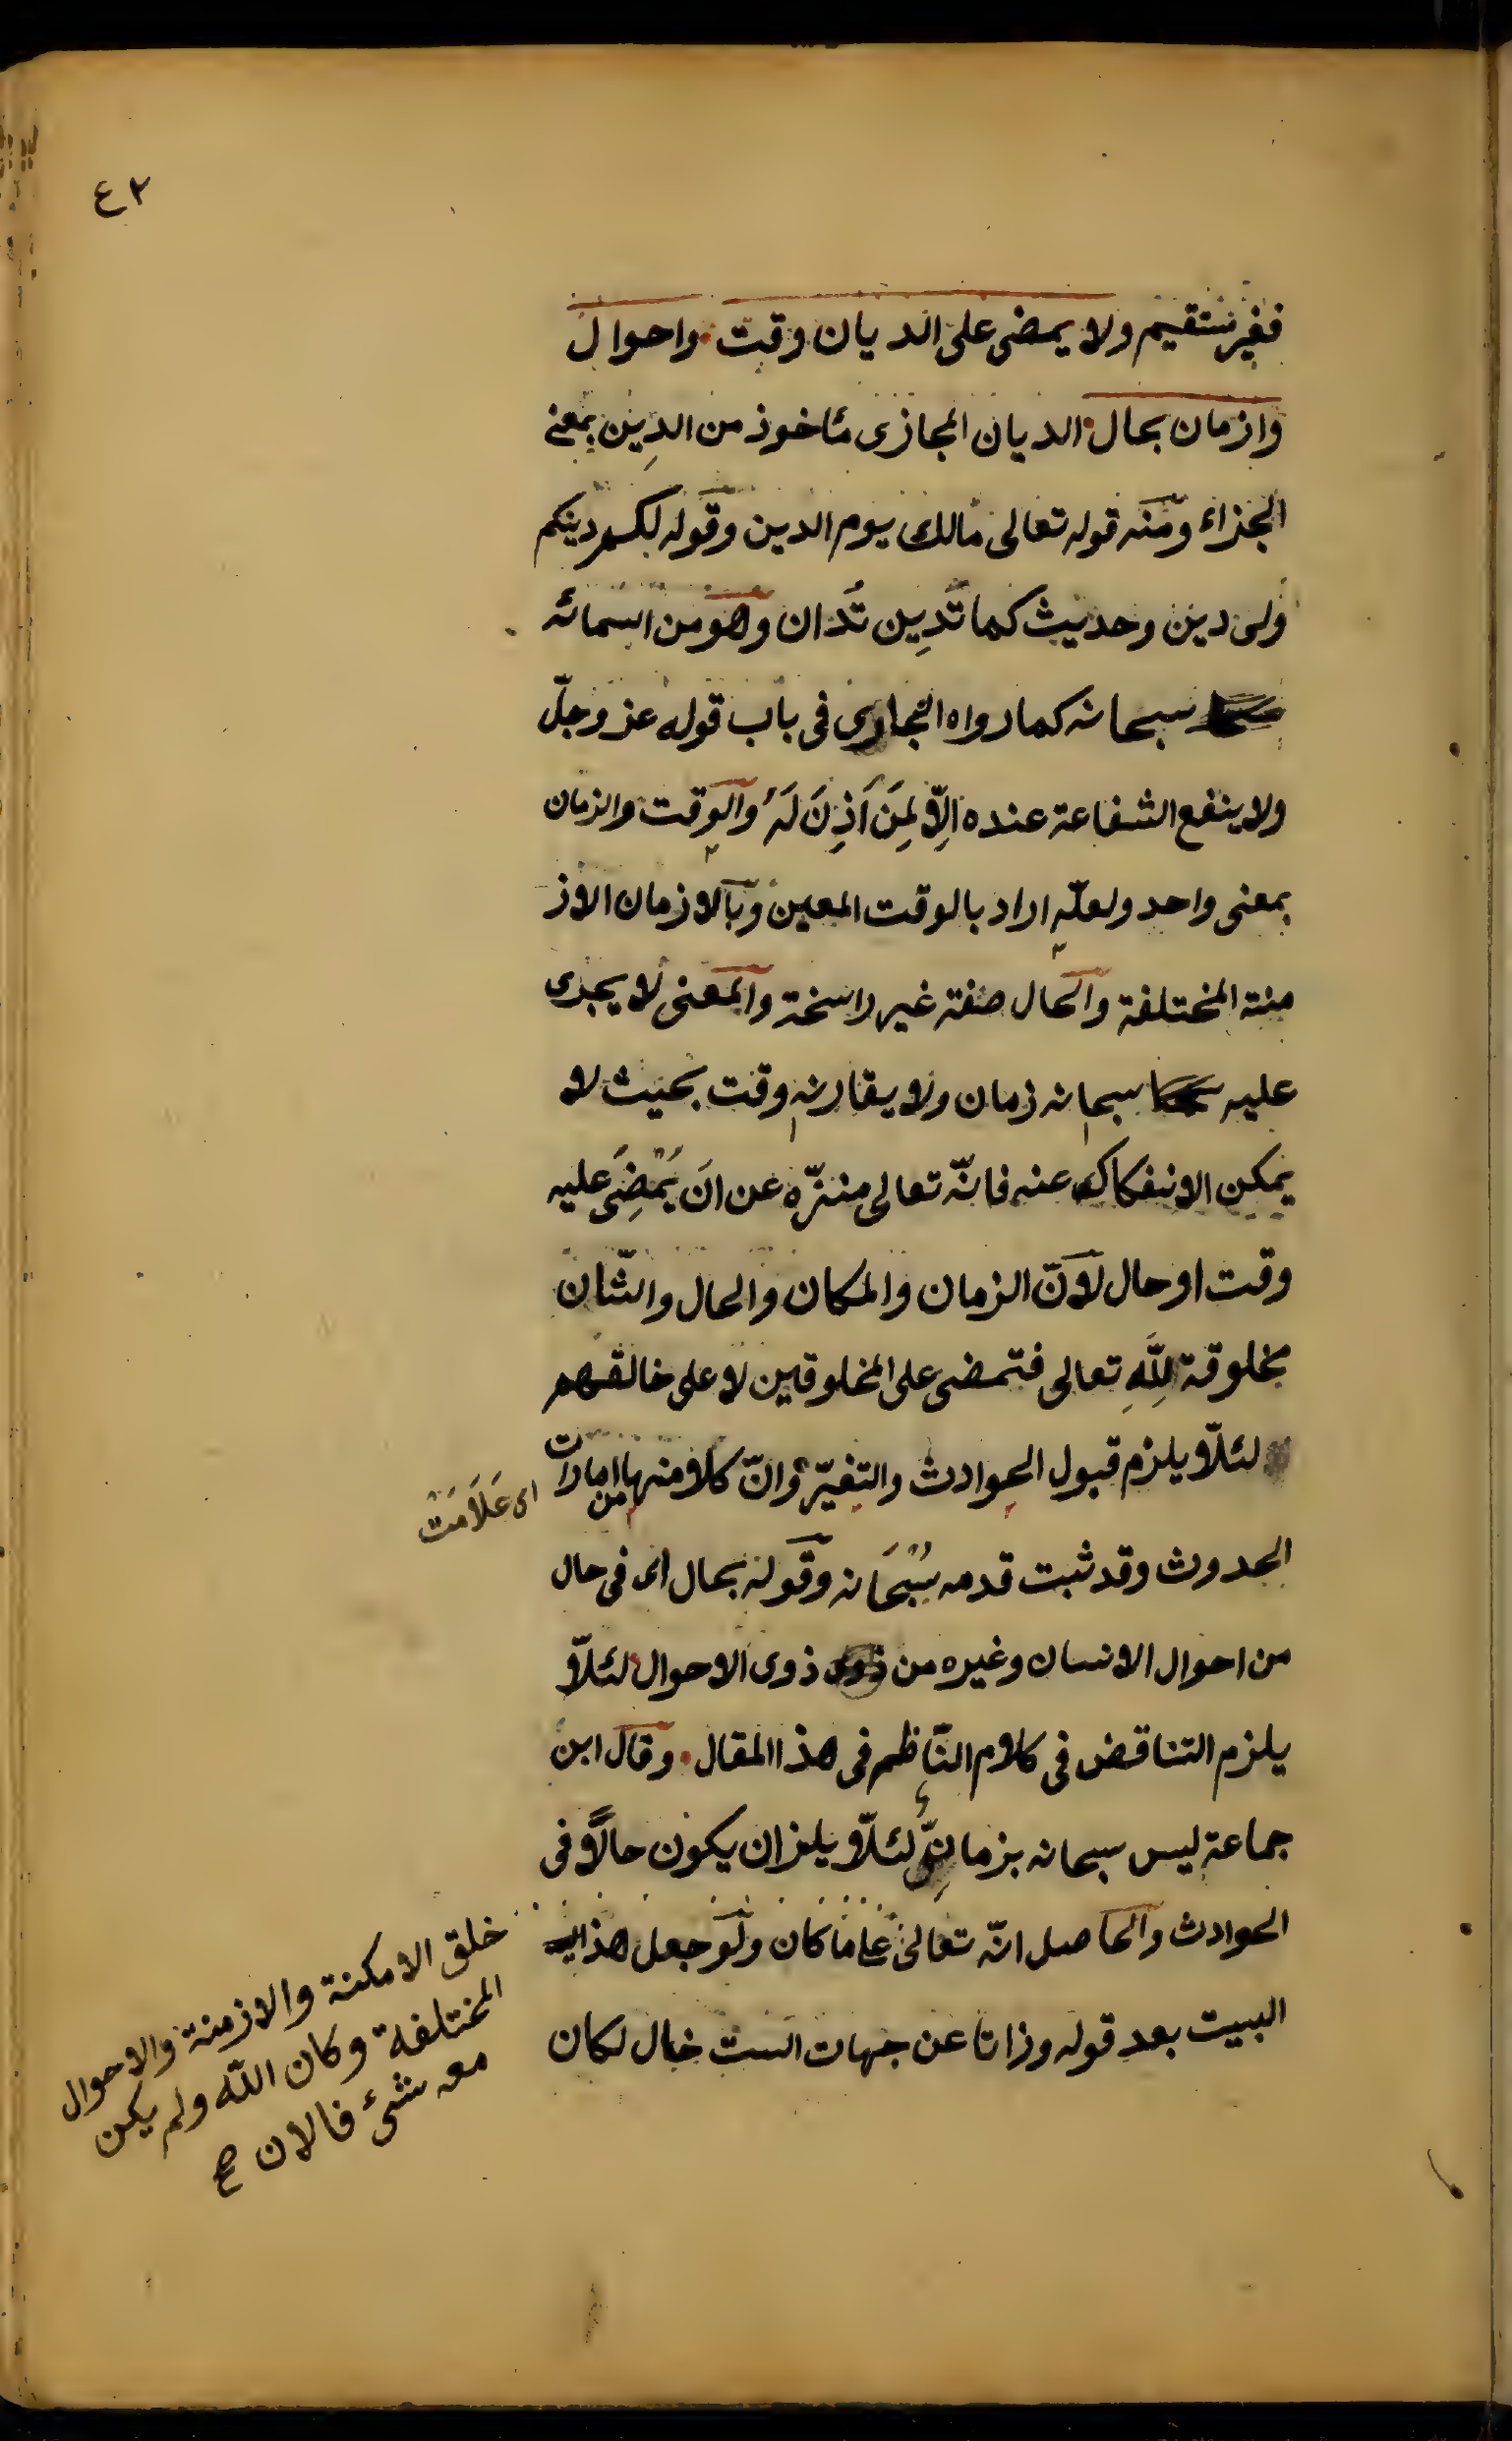 ٤٢
فغير مستقيم ولا يمضى على الديان وقت واحوال
وازمان بحال الديان المجازى مأخوذ من الدِين بمعنى
الجزاء ومنه قوله تعالى مالك يوم الدين وقوله لكم دينكم
ولى دين وحديث كما تَدِين تُدان وهو من اسمائه
سبحانه كما رواه البخارى فى باب قوله عز وجلّ
ولا ينفع الشفاعة عنده اِلّا لِمَن اَذِنَ لَهُ والوقت والزمان
بمعنى واحد ولعلّه اراد بالوقت المعين وبالازمان الاز
منة المختلفة والحال صفة غير راسخة والمعنى لا يجرى
عليه سبحانه زمان ولا يقارنه وقت بحيث لا
يمكن الانفكاك عنه فانّه تعالى منزّه عن ان يَمْضِىَ عليه
وقت او حال لانّ الزمان والمكان والحال والشّان
مخلوقة لِلّهِ تعالى فتمضى على المخلوقين لا على خالقهم
لئلّا يلزم قبول الحوادث والتغيّر وانّ كلا منها من امارات
اى عَلَامَت
الحدوث وقد ثبت قدمه سُبْحَانه وقوله بحال اى فى حال
من احوال الانسان وغيره من ذوى الاحوال لئلّا
يلزم التناقض فى كلام النّاظم فى هذا المقال وقال ابن
جماعة ليس سبحانه بزمانِىّ لئلّا يلزان يكون حالًا فى
الحوادث والحاصل انّه تعالى على ما كان ولو جعل هذا
خلق الامكنة والازمنة والاحوال
المختلفة وكان اللّه ولم يكن
معه شئ فالان صح
البيت بعد قوله وذاتا عن جهات الست خال لكان